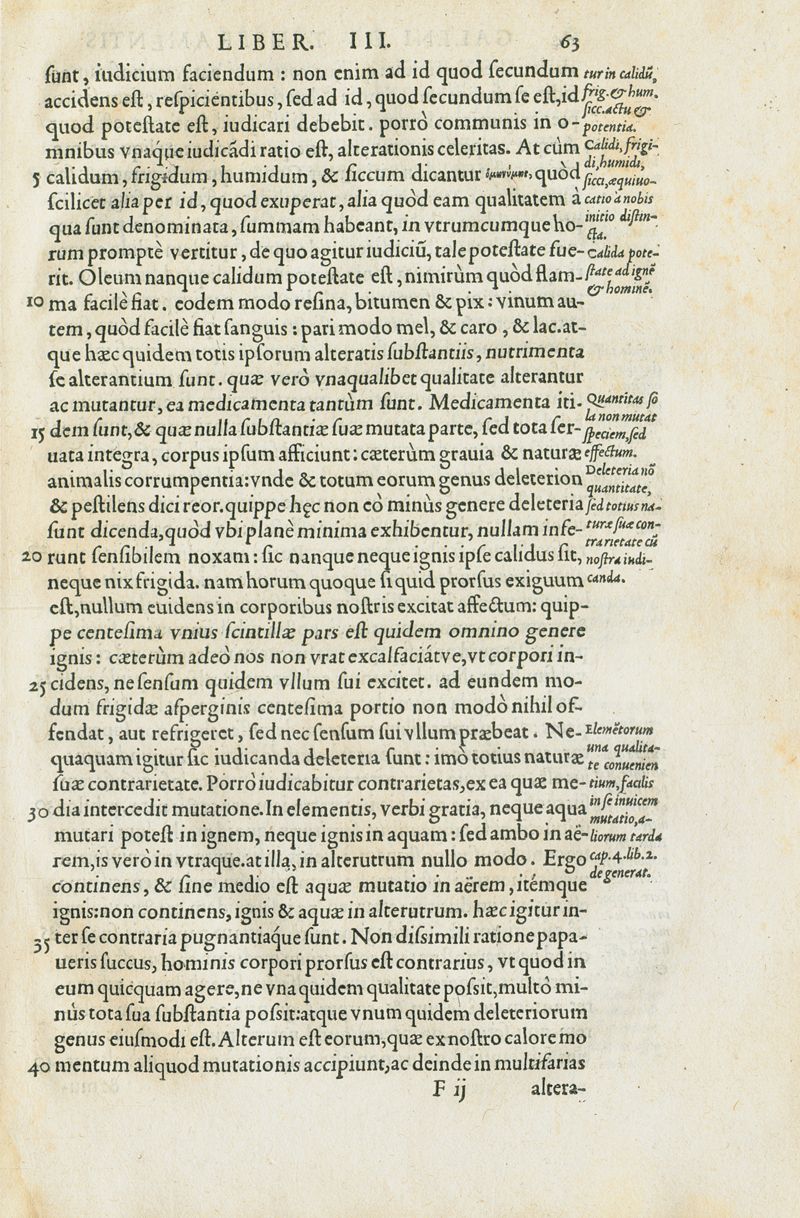 LIBER. III. 63
ſunt, iudicium faciendum : non enim ad id quod ſecundum
accidens eſt, reſpicientibus, ſed ad id, quod ſecundum ſe eſt, id
quod poteſtate eſt, iudicari debebit. porrò communis in o-
mnibus vnaque iudicãdi ratio eſt, alterationis celeritas. At cùm
5 calidum, frigidum, humidum, & ſiccum dicantur quòd
ſcilicet alia per id, quod exuperat, alia quòd eam qualitatem à
qua ſunt denominata, ſummam habeant, in vtrumcumque ho-
rum promptè vertitur, de quo agitur iudiciũ, tale poteſtate fue-
rit. Oleum nanque calidum poteſtate eſt, nimirùm quòd flam-
10 ma facilè fiat. eodem modo reſina, bitumen & pix : vinum au-
tem, quòd facilè fiat ſanguis : pari modo mel, & caro, & lac. at-
que hæc quidem totis ipſorum alteratis ſubſtantiis, nutrimenta
ſe alterantium ſunt. quæ verò vnaqualibet qualitate alterantur
ac mutantur, ea medicamenta tantùm ſunt. Medicamenta iti-
15 dem ſunt, & quæ nulla ſubſtantiæ ſuæ mutata parte, ſed tota ſer-
uata integra, corpus ipſum afficiunt : cæterùm grauia & naturæ
animalis corrumpentia: vnde & totum eorum genus deleterion
& peſtilens dici reor. quippe hęc non eò minùs genere deleteria
ſunt dicenda, quòd vbi planè minima exhibentur, nullam infe-
20 runt ſenſibilem noxam : ſic nanque neque ignis ipſe calidus ſit,
neque nix frigida. nam horum quoque ſi quid prorſus exiguum
eſt, nullum euidens in corporibus noſtris excitat affectum: quip-
pe centeſima vnius ſcintillæ pars eſt quidem omnino genere
ignis : cæterùm adeò nos non vrat excalfaciátve, vt corpori in-
25 cidens, ne ſenſum quidem vllum ſui excitet. ad eundem mo-
dum frigidæ aſperginis centeſima portio non modò nihil of-
fendat, aut refrigeret, ſed nec ſenſum ſui vllum præbeat. Ne-
quaquam igitur ſic iudicanda deleteria ſunt : imò totius naturæ
ſuæ contrarietate. Porrò iudicabitur contrarietas, ex ea quæ me-
30 dia intercedit mutatione. In elementis, verbi gratia, neque aqua
mutari poteſt in ignem, neque ignis in aquam : ſed ambo in aë-
rem, is verò in vtraque. at illa, in alterutrum nullo modo. Ergo
continens, & ſine medio eſt aquæ mutatio in aërem, itémque
ignis: non continens, ignis & aquæ in alterutrum. hæc igitur in-
35 ter ſe contraria pugnantiaque ſunt. Non diſsimili ratione papa-
ueris ſuccus, hominis corpori prorſus eſt contrarius, vt quod in
eum quicquam agere, ne vna quidem qualitate poſsit, multò mi-
nùs tota ſua ſubſtantia poſsit: atque vnum quidem deleteriorum
genus eiuſmodi eſt. Alterum eſt eorum, quæ ex noſtro calore mo
40 mentum aliquod mutationis accipiunt, ac deinde in multifarias
F ij altera-
tur in calidũ,
frig. & hum.
ſicc. actu &
potentia.
Calidi, frigi-
di, humidi,
ſicci, æquiuo-
catio à nobis
initio diſtin-
cta.
Calida pote-
ſtate ad ignẽ
& hominẽ.
Quantitas ſo
la non mutat
ſpeciem, ſed
effectum.
Deleteria nõ
quantitate,
ſed totius na-
turæ ſuæ con-
trarietate cũ
noſtra iudi-
canda.
Elemẽtorum
una qualita-
te conuenien
tium, facilis
in ſe inuicem
mutatio, a-
liorum tarda
cap. 4. lib. 2.
de generat.